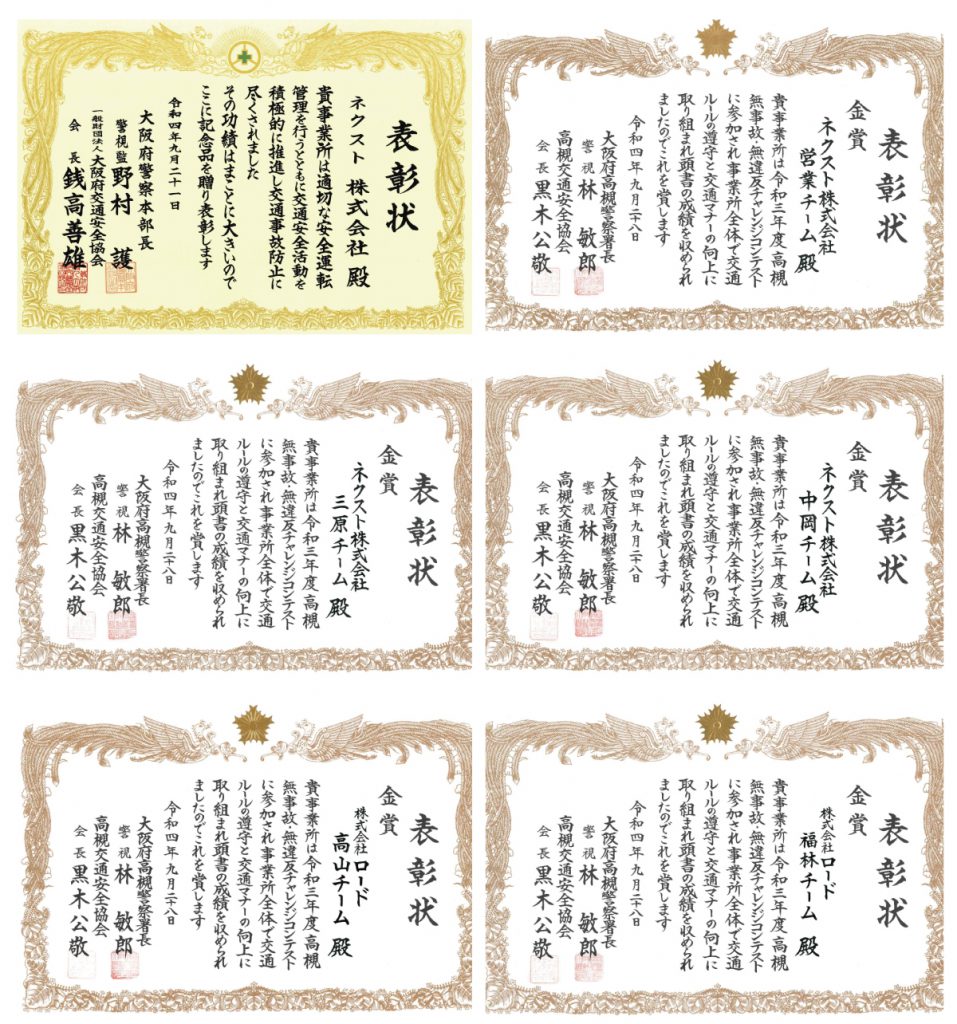 表彰状
ネクスト 株式会社 殿
貴事業所は適切な安全運転
管理を行うとともに交通安全活動を
積極的に推進し交通事故防止に
尽くされました
その功績はまことに大きいので
ここに記念品を贈り表彰します
令和四年九月二十一日
大阪府警察本部長
警視監 野村 護
一般財団法人 大阪府交通安全協会
会長 銭高善雄
表彰状
金賞
ネクスト株式会社
営業チーム 殿
貴事業所は令和三年度高槻
無事故・無違反チャレンジコンテスト
に参加され事業所全体で交通
ルールの遵守と交通マナーの向上に
取り組まれ頭書の成績を収められ
ましたのでこれを賞します
令和四年九月二十八日
大阪府高槻警察署長
警視 林 敏郎
高槻交通安全協会
会長 黒木公敬
表彰状
金賞
ネクスト株式会社
三原チーム 殿
貴事業所は令和三年度高槻
無事故・無違反チャレンジコンテスト
に参加され事業所全体で交通
ルールの遵守と交通マナーの向上に
取り組まれ頭書の成績を収められ
ましたのでこれを賞します
令和四年九月二十八日
大阪府高槻警察署長
警視 林 敏郎
高槻交通安全協会
会長 黒木公敬
表彰状
金賞
ネクスト株式会社
中岡チーム 殿
貴事業所は令和三年度高槻
無事故・無違反チャレンジコンテスト
に参加され事業所全体で交通
ルールの遵守と交通マナーの向上に
取り組まれ頭書の成績を収められ
ましたのでこれを賞します
令和四年九月二十八日
大阪府高槻警察署長
警視 林 敏郎
高槻交通安全協会
会長 黒木公敬
表彰状
金賞
株式会社ロード
高山チーム 殿
貴事業所は令和三年度高槻
無事故・無違反チャレンジコンテスト
に参加され事業所全体で交通
ルールの遵守と交通マナーの向上に
取り組まれ頭書の成績を収められ
ましたのでこれを賞します
令和四年九月二十八日
大阪府高槻警察署長
警視 林 敏郎
高槻交通安全協会
会長 黒木公敬
表彰状
金賞
株式会社ロード
福林チーム 殿
貴事業所は令和三年度高槻
無事故・無違反チャレンジコンテスト
に参加され事業所全体で交通
ルールの遵守と交通マナーの向上に
取り組まれ頭書の成績を収められ
ましたのでこれを賞します
令和四年九月二十八日
大阪府高槻警察署長
警視 林 敏郎
高槻交通安全協会
会長 黒木公敬